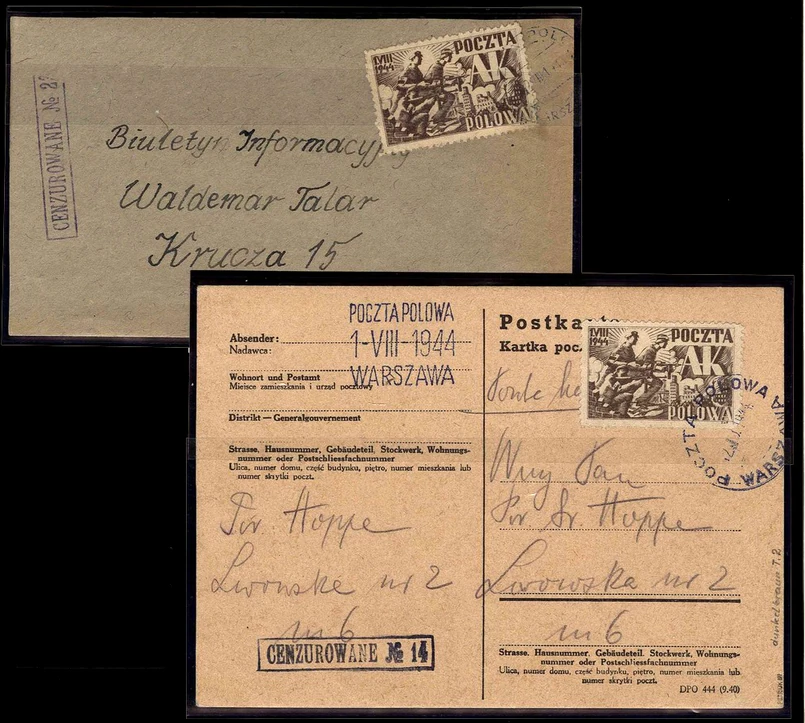 CENZUROWANE № 2
1.VIII
1944
POCZTA
AK
POLOWA
Biuletyn Informacyjny
Waldemar Talar
Krucza 15
POCZTA POLOWA
1-VIII-1944
WARSZAWA
Absender:
Nadawca:
Wohnort und Postamt
Miejsce zamieszkania i urząd pocztowy
Distrikt — Generalgouvernement
Strasse, Hausnummer, Gebäudeteil, Stockwerk, Wohnungs-
nummer oder Postschliessfachnummer
Ulica, numer domu, część budynku, piętro, numer mieszkania lub
numer skrytki poczt.
Por Hoppe
Lwowska nr 2
m 6
CENZUROWANE № 14
Postka
Kartka poc
1.VIII
1944
POCZTA
AK
POLOWA
POCZTA POLOWA
WARSZAWA
Wny Pan
Por Dr. Hoppe
Lwowska nr 2
m 6
Strasse, Hausnummer, Gebäudeteil, Stockwerk, Wohnungs-
nummer oder Postschliessfachnummer
Ulica, numer domu, część budynku, piętro, numer mieszkania lub
numer skrytki poczt.
DPO 444 (9.40)
dunkelbraun T. 2